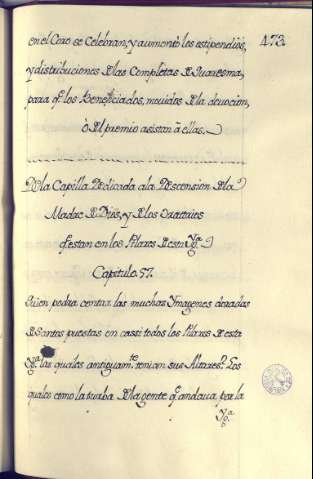 en el Coro se Celebran, y aumentò los estipendios, 473.
y distribuciones de las Completas de Quaresma,
para q.e los Beneficiados, movidos de la devocion,
ò del premio asistan à ellas.
De la Capilla Dedicada a la Descension de la
Madre de Dios, y de los
q.e estan en los Pilares de esta Yg.a
Capitulo. 57.
Quien podra contar las muchas Ymagenes doradas
de Santos puestas en cassi todos los Pilares de esta
Yg.a las quales antiguam.te tenian sus Altares? Los
quales como la turba de la gente q.e andava por la
Yg.a